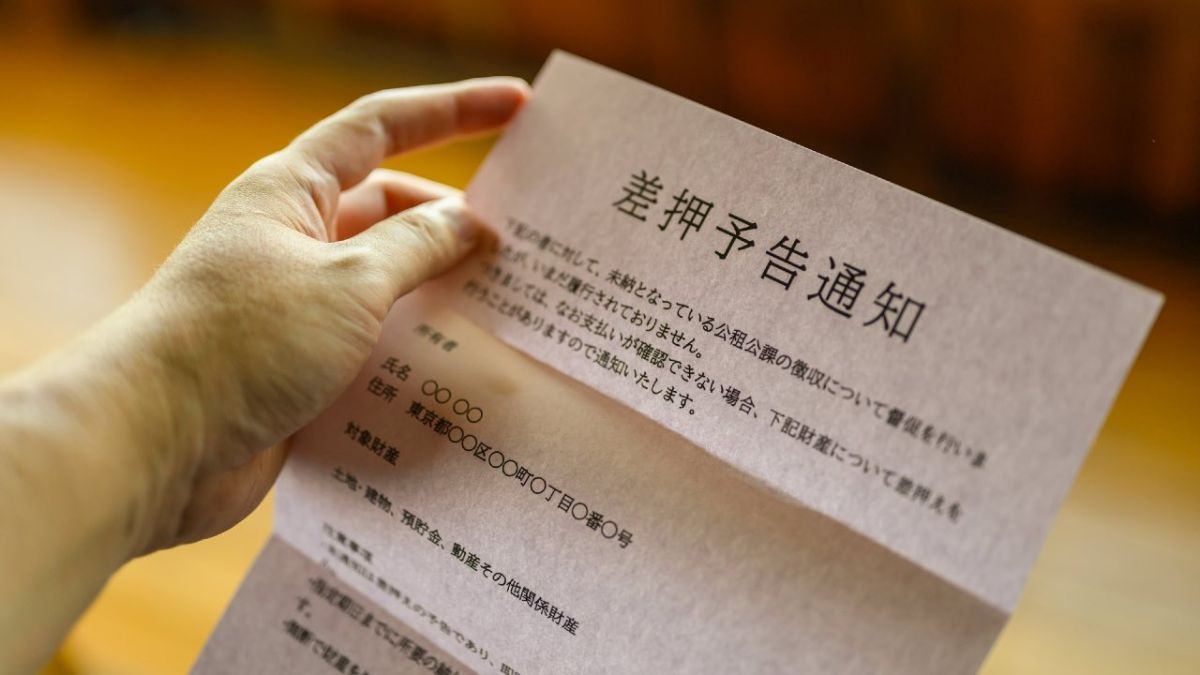 差押予告通知
下記の者に対して、未納となっている公租公課の徴収について督促を行いま
したが、いまだ履行されておりません。
つきましては、なお支払いが確認できない場合、下記財産について差押えを
行うことがありますので通知いたします。
所有者
氏名 〇〇 〇〇
住所 東京都〇〇区〇〇町〇丁目〇番〇号
対象財産
土地・建物、預貯金、動産その他関係財産
注意事項
差押えの予告であり、
・指定期日までに所要の納
す。